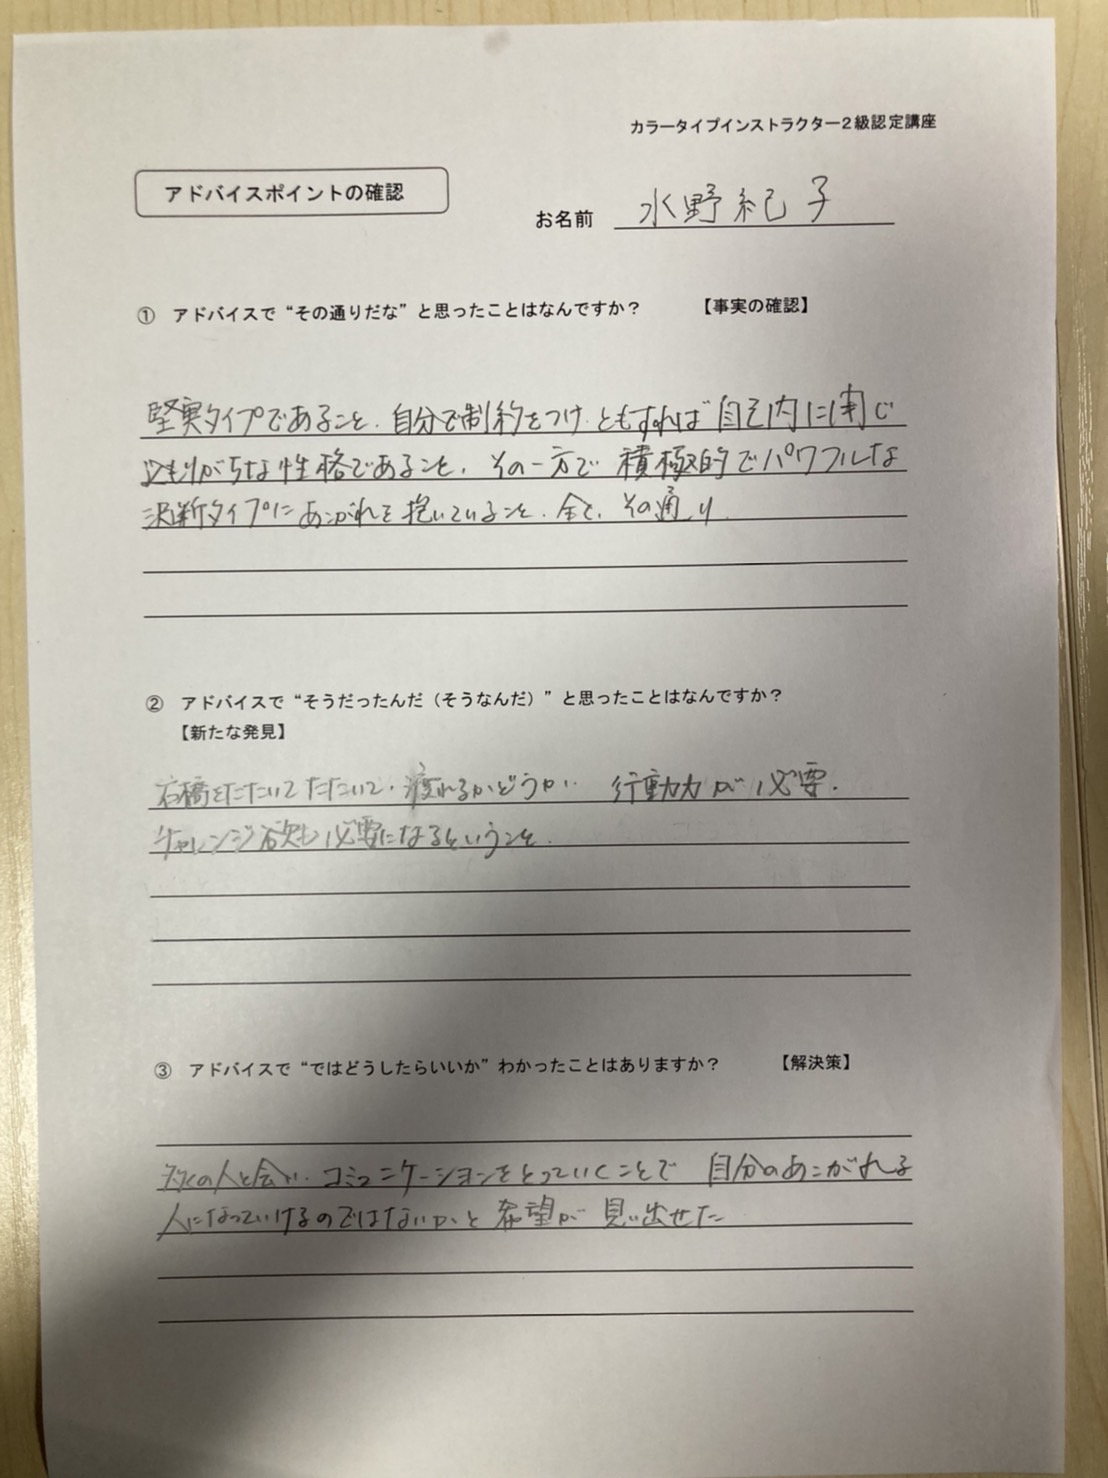 カラータイプインストラクター2級認定講座
アドバイスポイントの確認
お名前 水野紀子
① アドバイスで“その通りだな”と思ったことはなんですか？ 【事実の確認】
堅実タイプであること、自分で制約をつけ、ともすれば自己内に閉じ
こもりがちな性格であること、その一方で積極的でパワフルな
決断タイプにあこがれを抱いていること、全て、その通り
② アドバイスで“そうだったんだ（そうなんだ）”と思ったことはなんですか？
【新たな発見】
石橋をたたいてたたいて、渡れるかどうか 行動力が必要、
チャレンジ欲も必要になるということ、
③ アドバイスで“ではどうしたらいいか”わかったことはありますか？ 【解決策】
多くの人と会い、コミュニケーションをとっていくことで 自分のあこがれる
人になっていけるのではないかと希望が見い出せた